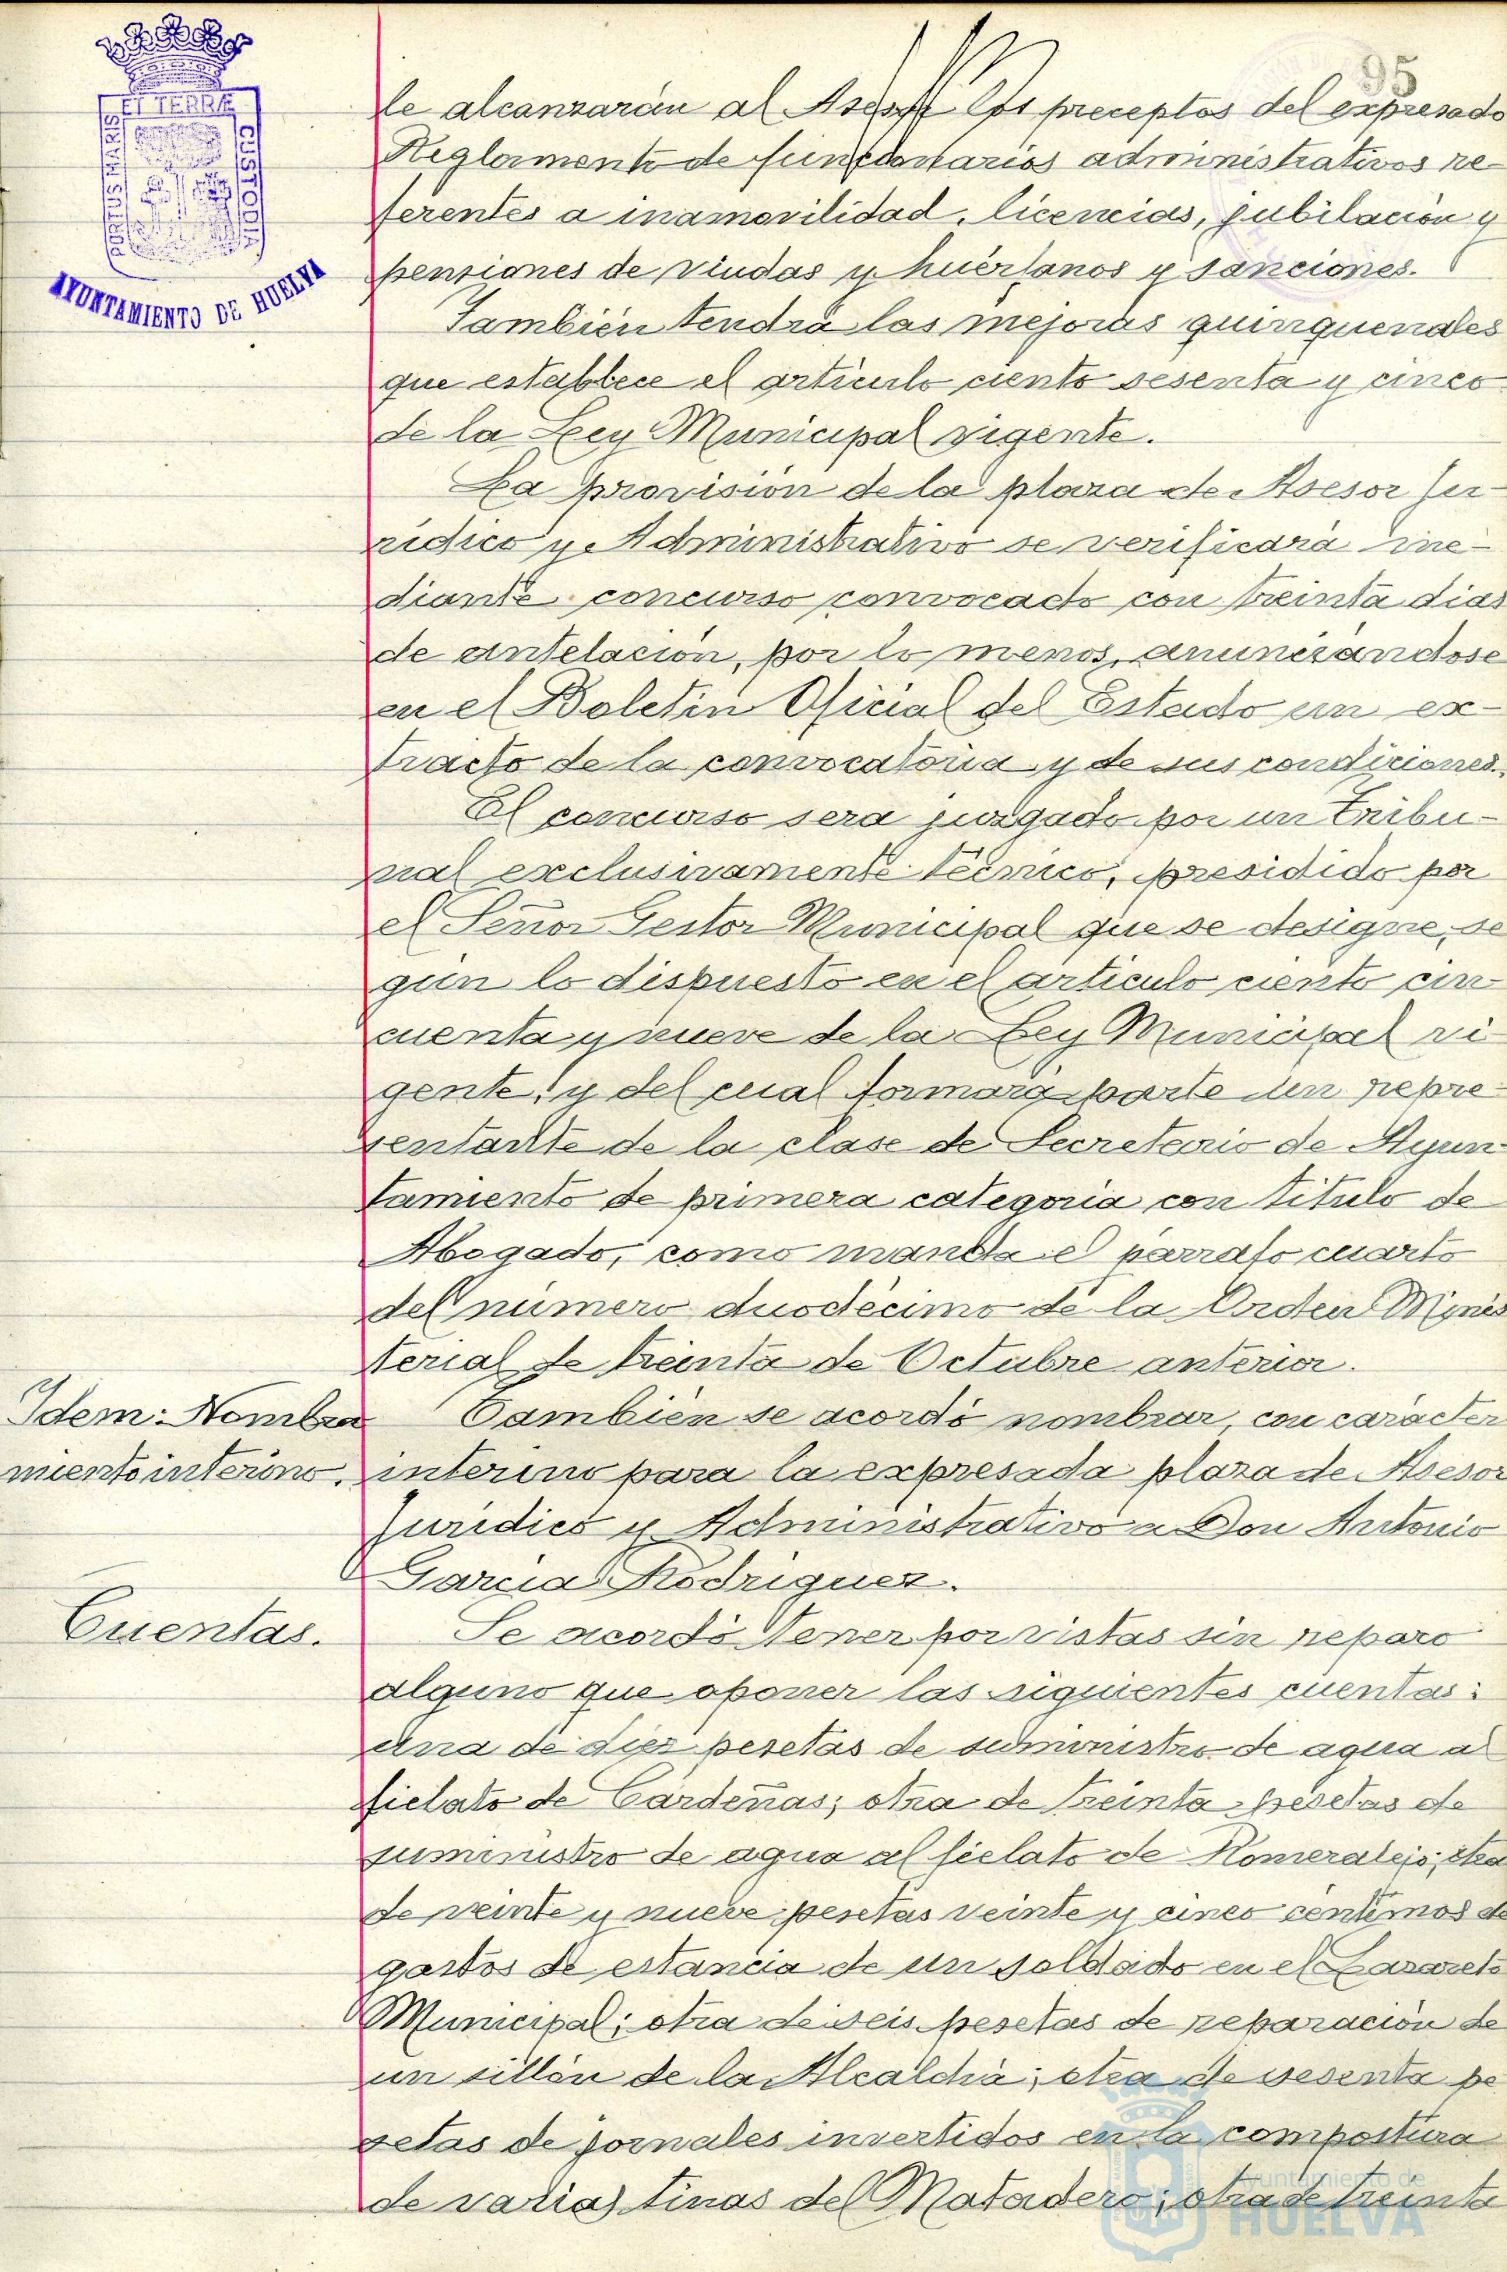 95
ET TERRÆ
PORTUS MARIS
CUSTODIA
AYUNTAMIENTO DE HUELVA
le alcanzarán al Asesor los preceptos del expresado
Reglamento de funcionarios administrativos re-
ferentes a inamovilidad, licencias, jubilación y
pensiones de viudas y huérfanos y sanciones.
También tendrá las mejoras quinquenales
que establece el artículo ciento sesenta y cinco
de la Ley Municipal vigente.
La provisión de la plaza de Asesor Ju-
rídico y Administrativo se verificará me-
diante concurso convocado con treinta dias
de antelación, por lo menos, anunciándose
en el Boletín Oficial del Estado un ex-
tracto de la convocatoria y de sus condiciones.
El concurso será juzgado por un Tribu-
nal exclusivamente técnico, presidido por
el Señor Gestor Municipal que se designe, se
gún lo dispuesto en el artículo ciento cin-
cuenta y nueve de la Ley Municipal vi-
gente, y del cual formará parte un repre-
sentante de la clase de Secretario de Ayun-
tamiento de primera categoria con titulo de
Abogado, como manda el párrafo cuarto
del número duodécimo de la Orden Minis
terial de treinta de Octubre anterior.
Idem: Nombra
miento interino.
También se acordó nombrar, con carácter
interino para la expresada plaza de Asesor
Jurídico y Administrativo a Don Antonio
García Rodriguez.
Cuentas.
Se acordó tener por vistas sin reparo
alguno que oponer las siguientes cuentas:
una de diez pesetas de suministro de agua al
fielato de Cardeñas; otra de treinta pesetas de
suministro de agua al fielato de Romeralejo; otra
de veinte y nueve pesetas veinte y cinco céntimos de
gastos de estancia de un soldado en el Lazareto
Municipal; otra de seis pesetas de reparación de
un sillón de la Alcaldía; otra de sesenta pe
setas de jornales invertidos en la compostura
de varias tinas del Matadero; otra de treinta
Ayuntamiento de
HUELVA